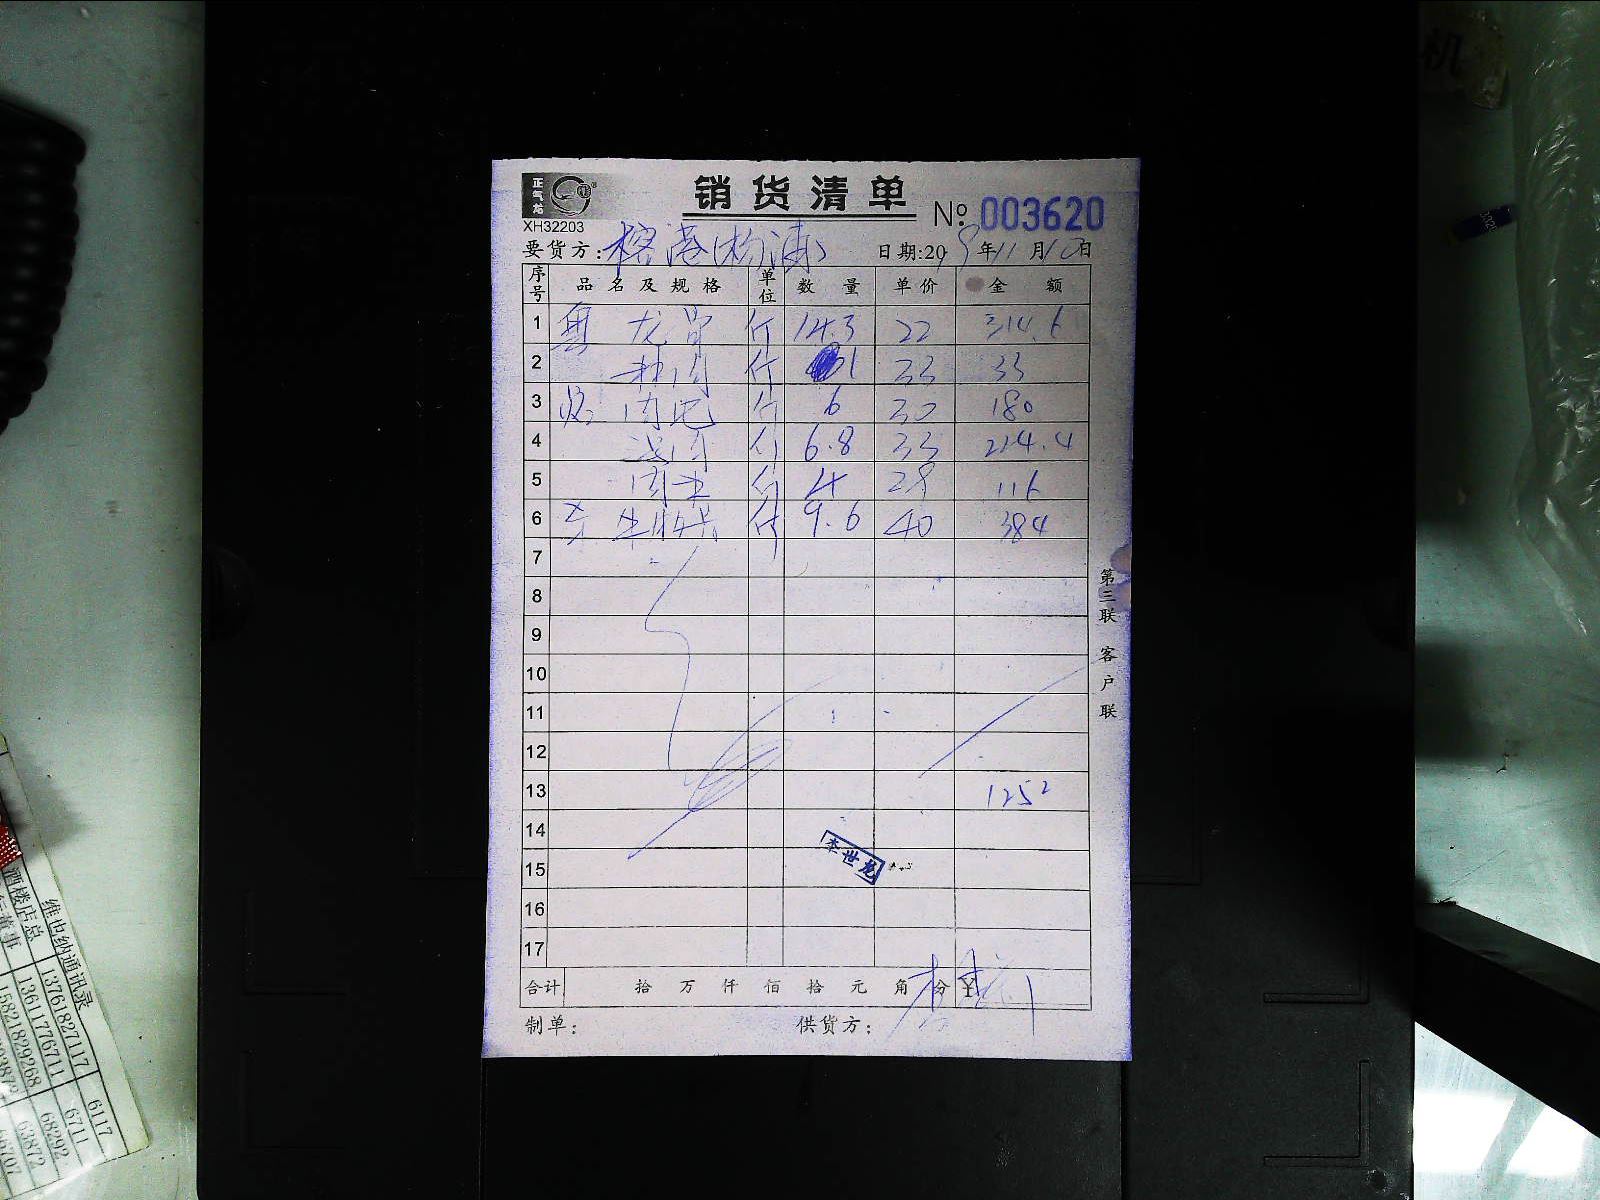 机
正气龙
XH32203
销货清单
№ 003620
要货方: 榕港(杨浦) 日期:2019年11月10日
序号 品名及规格 单位 数量 单价 金额
1 粤 龙骨 斤 14.3 22 314.6
2 斤 1 33 33
3 斤 6 30 180
4 斤 6.8 33 224.4
5 斤 4 29 116
6 斤 9.6 40 384
7
8
9
10
11
12
13 1252
14
15 李世龙
16
17
合计 拾 万 仟 佰 拾 元 角 分 ¥
制单: 供货方:
第三联 客户联
维也纳通讯录
酒楼店总 13761827117 6117
13611776711 6711
15821829268 68292
63872